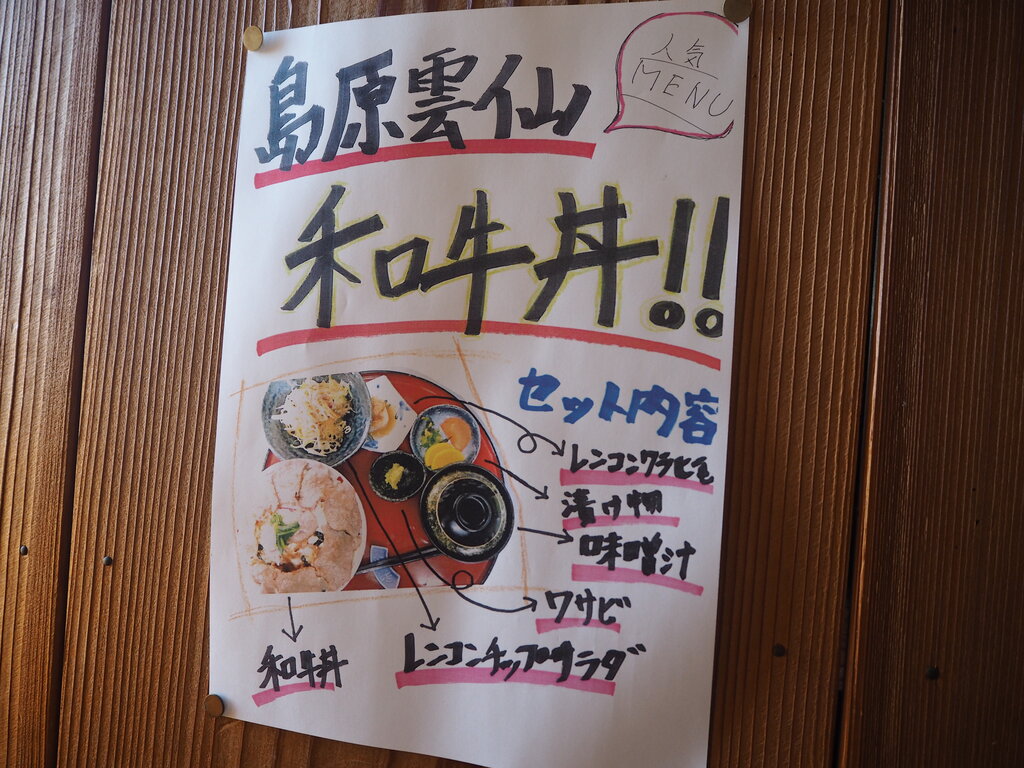 人気
MENU
島原雲仙
和牛丼!!
セット内容
レンコンワラビモ
漬け物
味噌汁
ワサビ
レンコンチップサラダ
和牛丼